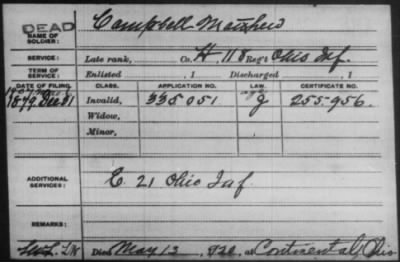 DEAD
NAME OF SOLDIER: Campbell Matthew
SERVICE: Late rank, Co. H, 118 Reg't Ohio Inf.
TERM OF SERVICE: Enlisted , 1 Discharged , 1
DATE OF FILING. CLASS. APPLICATION NO. LAW. CERTIFICATE NO.
1879 Dec 31 Invalid, 335051 J 255-956.
Widow,
Minor,
ADDITIONAL SERVICES: E. 21 Ohio Inf.
REMARKS:
Died May 13, 1920, at Continental, Ohio